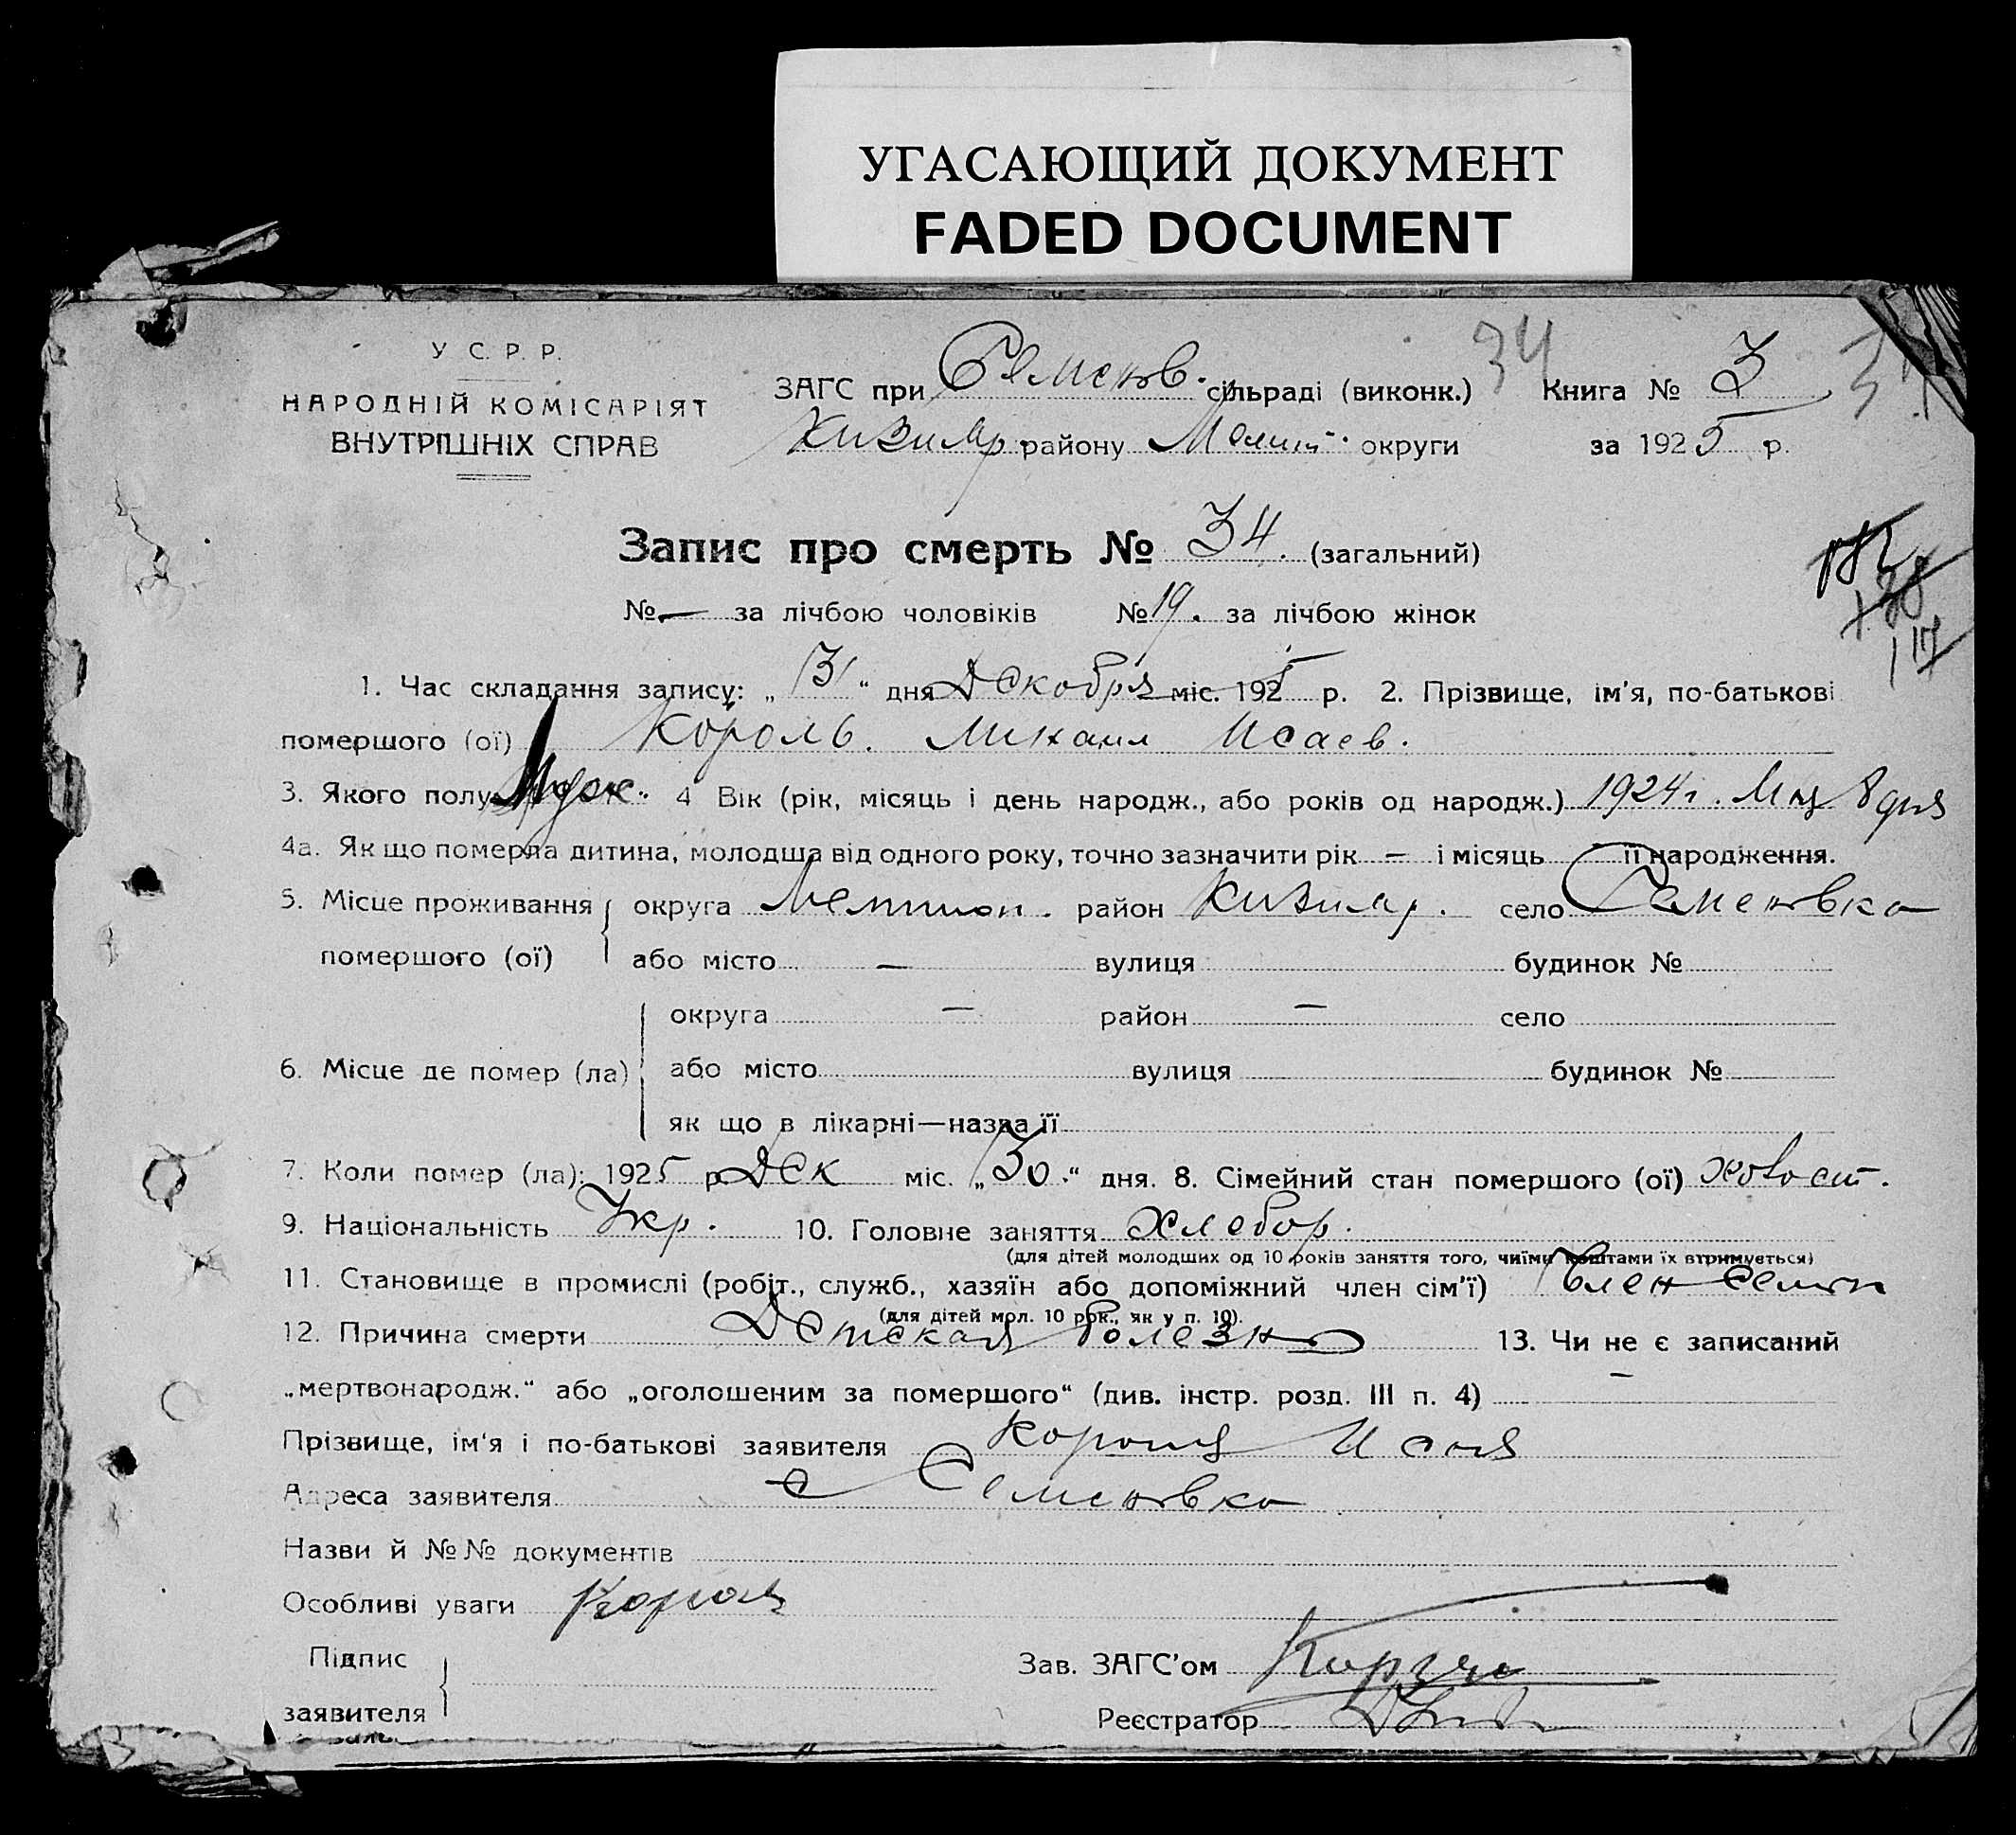 УГАСАЮЩИЙ ДОКУМЕНТ
FADED DOCUMENT
У С. Р. Р.
НАРОДНІЙ КОМІСАРІЯТ
ВНУТРІШНІХ СПРАВ
ЗАГС при Семенов. сільраді (виконк.) 34 Книга № 3
Кизияр. району Мелит. округи за 1925 р.
Запис про смерть № 34. (загальний)
№ — за лічбою чоловіків № 19. за лічбою жінок
1. Час складання запису: „ 31 “ дня Декобря міс. 1925 р. 2. Прізвище, ім'я, по-батькові
помершого (ої) Король. Михаил Исаев.
3. Якого полу Муж. 4 Вік (рік, місяць і день народж., або років од народж.) 1924 г. 8 дня
4а. Як що померла дитина, молодша від одного року, точно зазначити рік — і місяць її народження.
5. Місце проживання помершого (ої) округа район Кизияр. село Семеновка
або місто — вулиця будинок №
6. Місце де помер (ла) округа — район — село
або місто вулиця будинок №
як що в лікарні—назва її
7. Коли помер (ла): 1925 р. Дек міс. „ 30 “ дня. 8. Сімейний стан помершого (ої) холост.
9. Національність Укр. 10. Головне заняття Хлебор.
(для дітей молодших од 10 років заняття того, чиїми коштами їх втримується)
11. Становище в промислі (робіт., служб., хазяїн або допоміжний член сім'ї) Член семи
(для дітей мол. 10 рок., як у п. 10).
12. Причина смерти Детская болезнь 13. Чи не є записаний
„мертвонародж.“ або „оголошеним за помершого“ (див. інстр. розд. III п. 4) —
Прізвище, ім'я і по-батькові заявителя
Адреса заявителя с Семеновка
Назви й №№ документів
Особливі уваги
Підпис
заявителя
Зав. ЗАГС'ом
Реєстратор